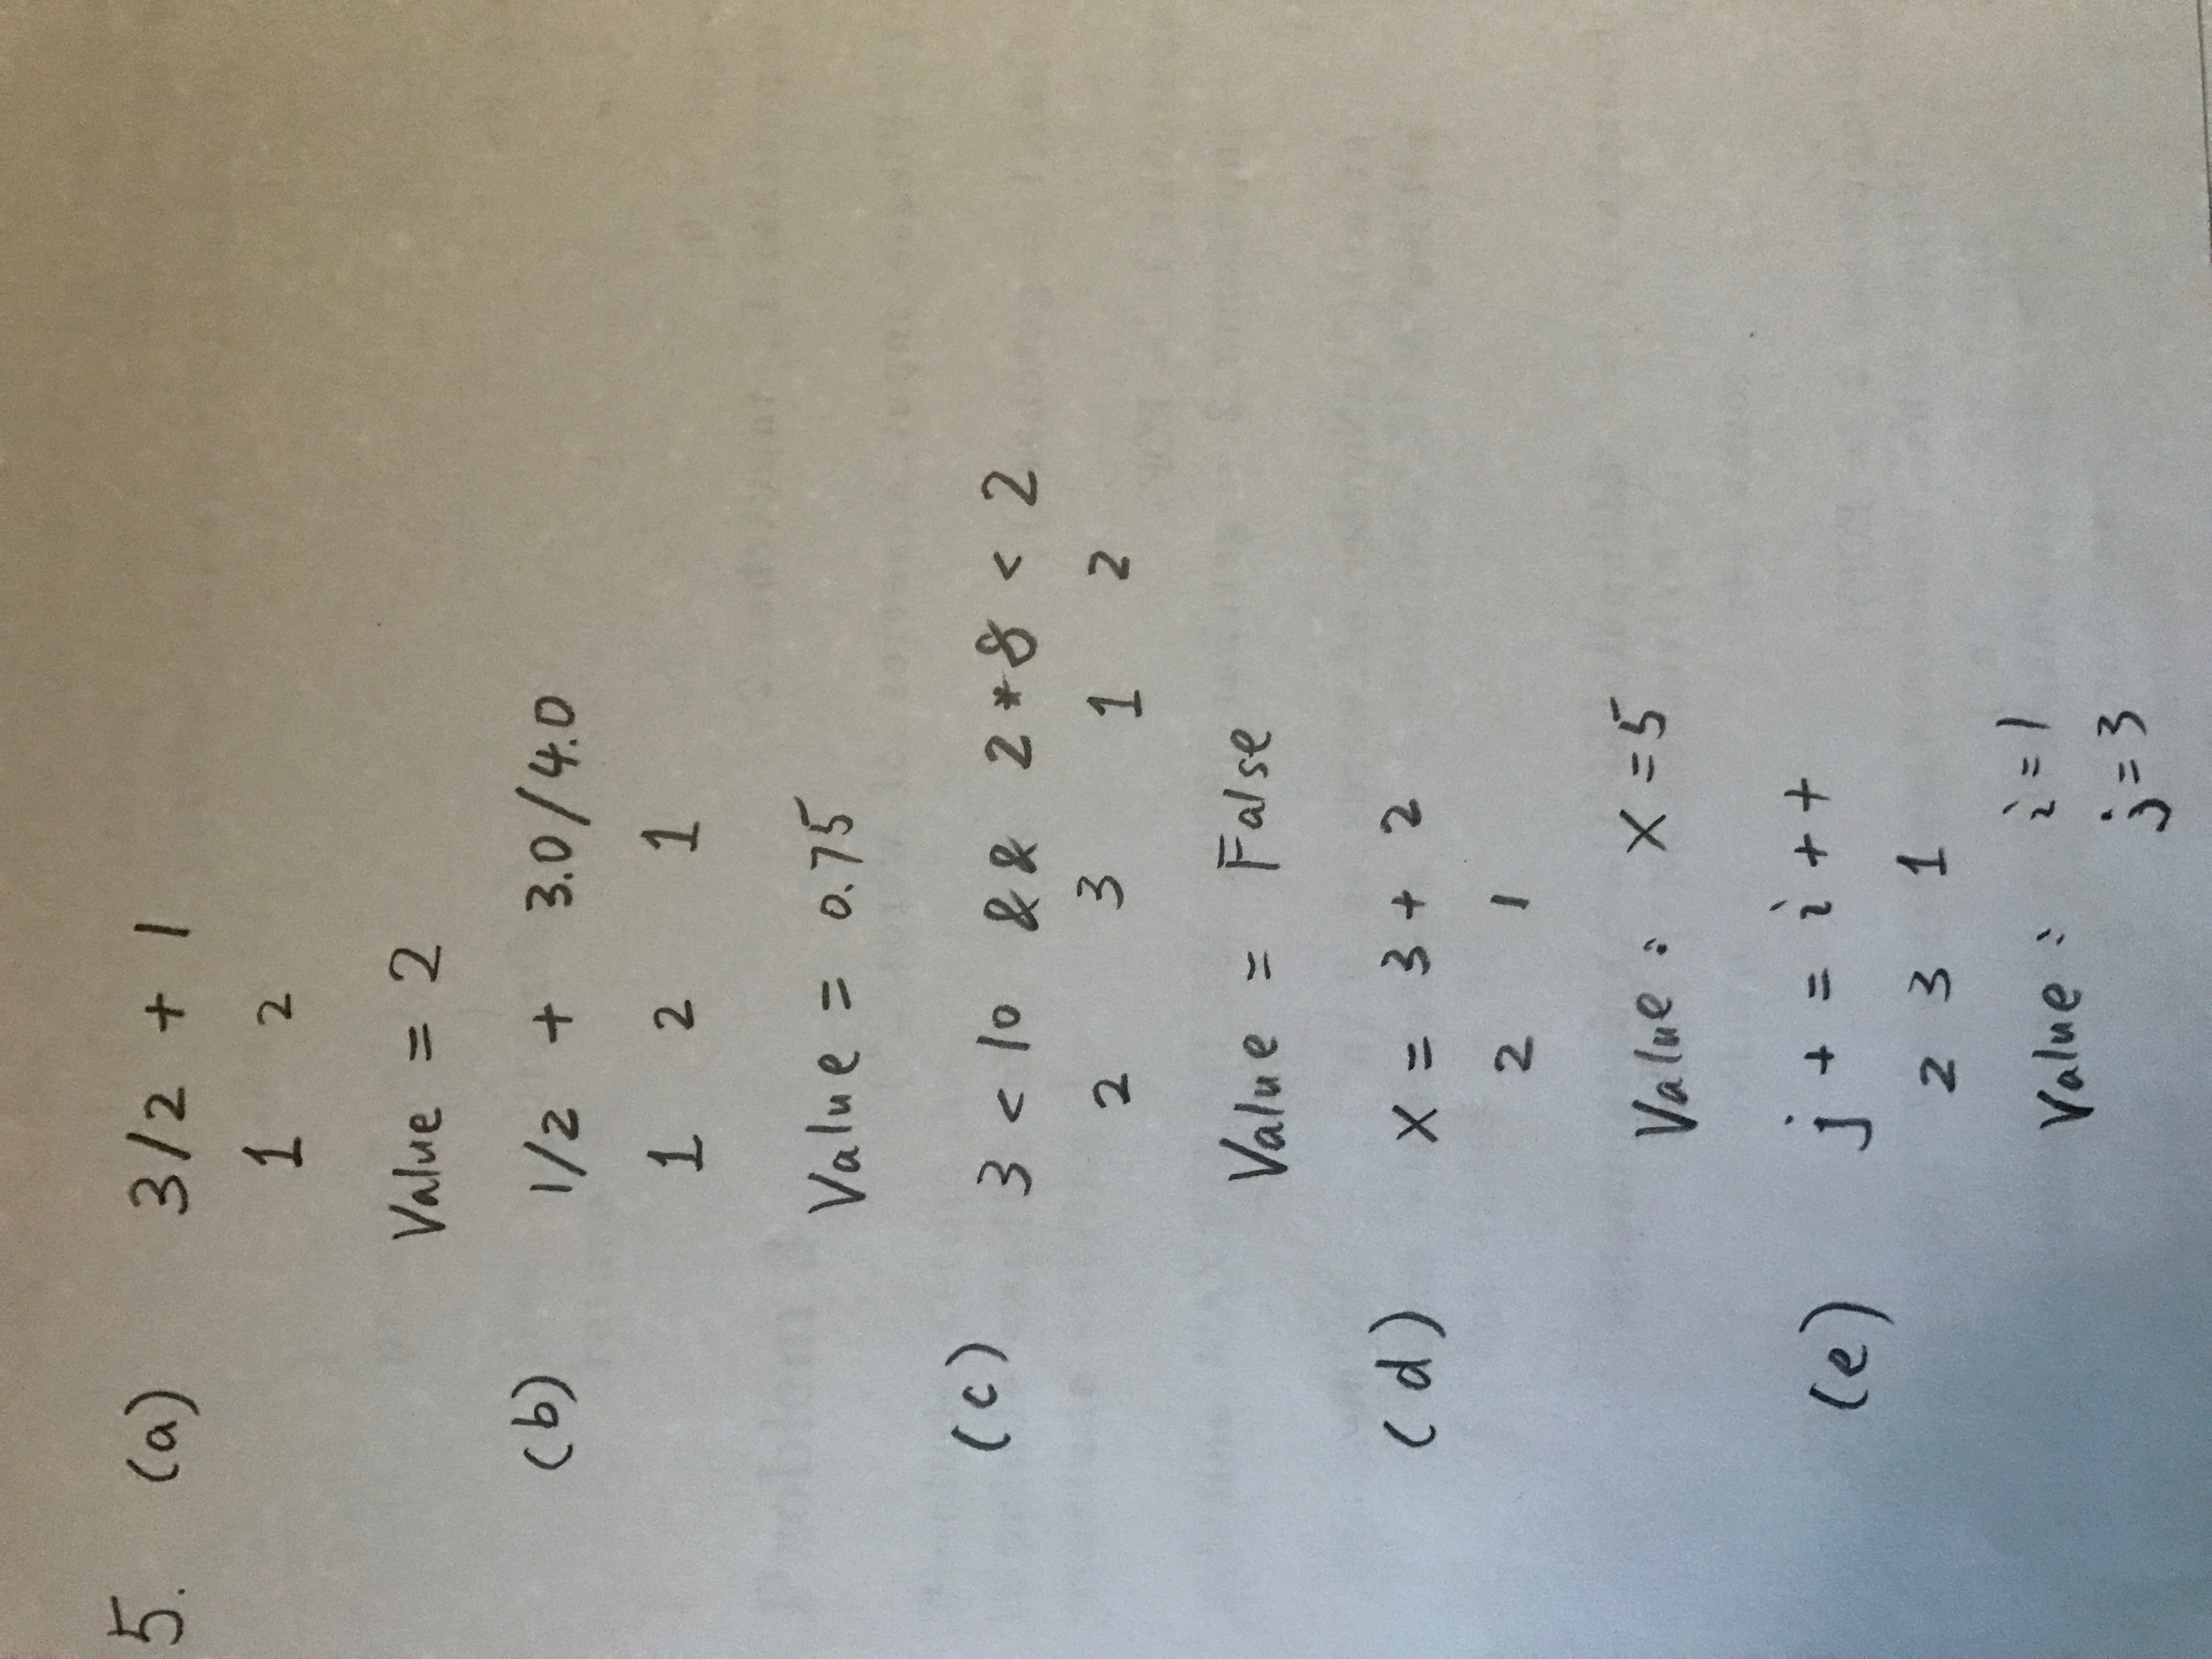 5. (a) 3/2 + 1
1 2
Value = 2
(b) 1/2 + 3.0/4.0
1 2 1
Value = 0.75
(c) 3 < 10 && 2*8 < 2
2 3 1 2
Value = False
(d) x = 3 + 2
2 1
Value: x = 5
(e) j + = i + +
2 3 1
Value: i = 1
j = 3